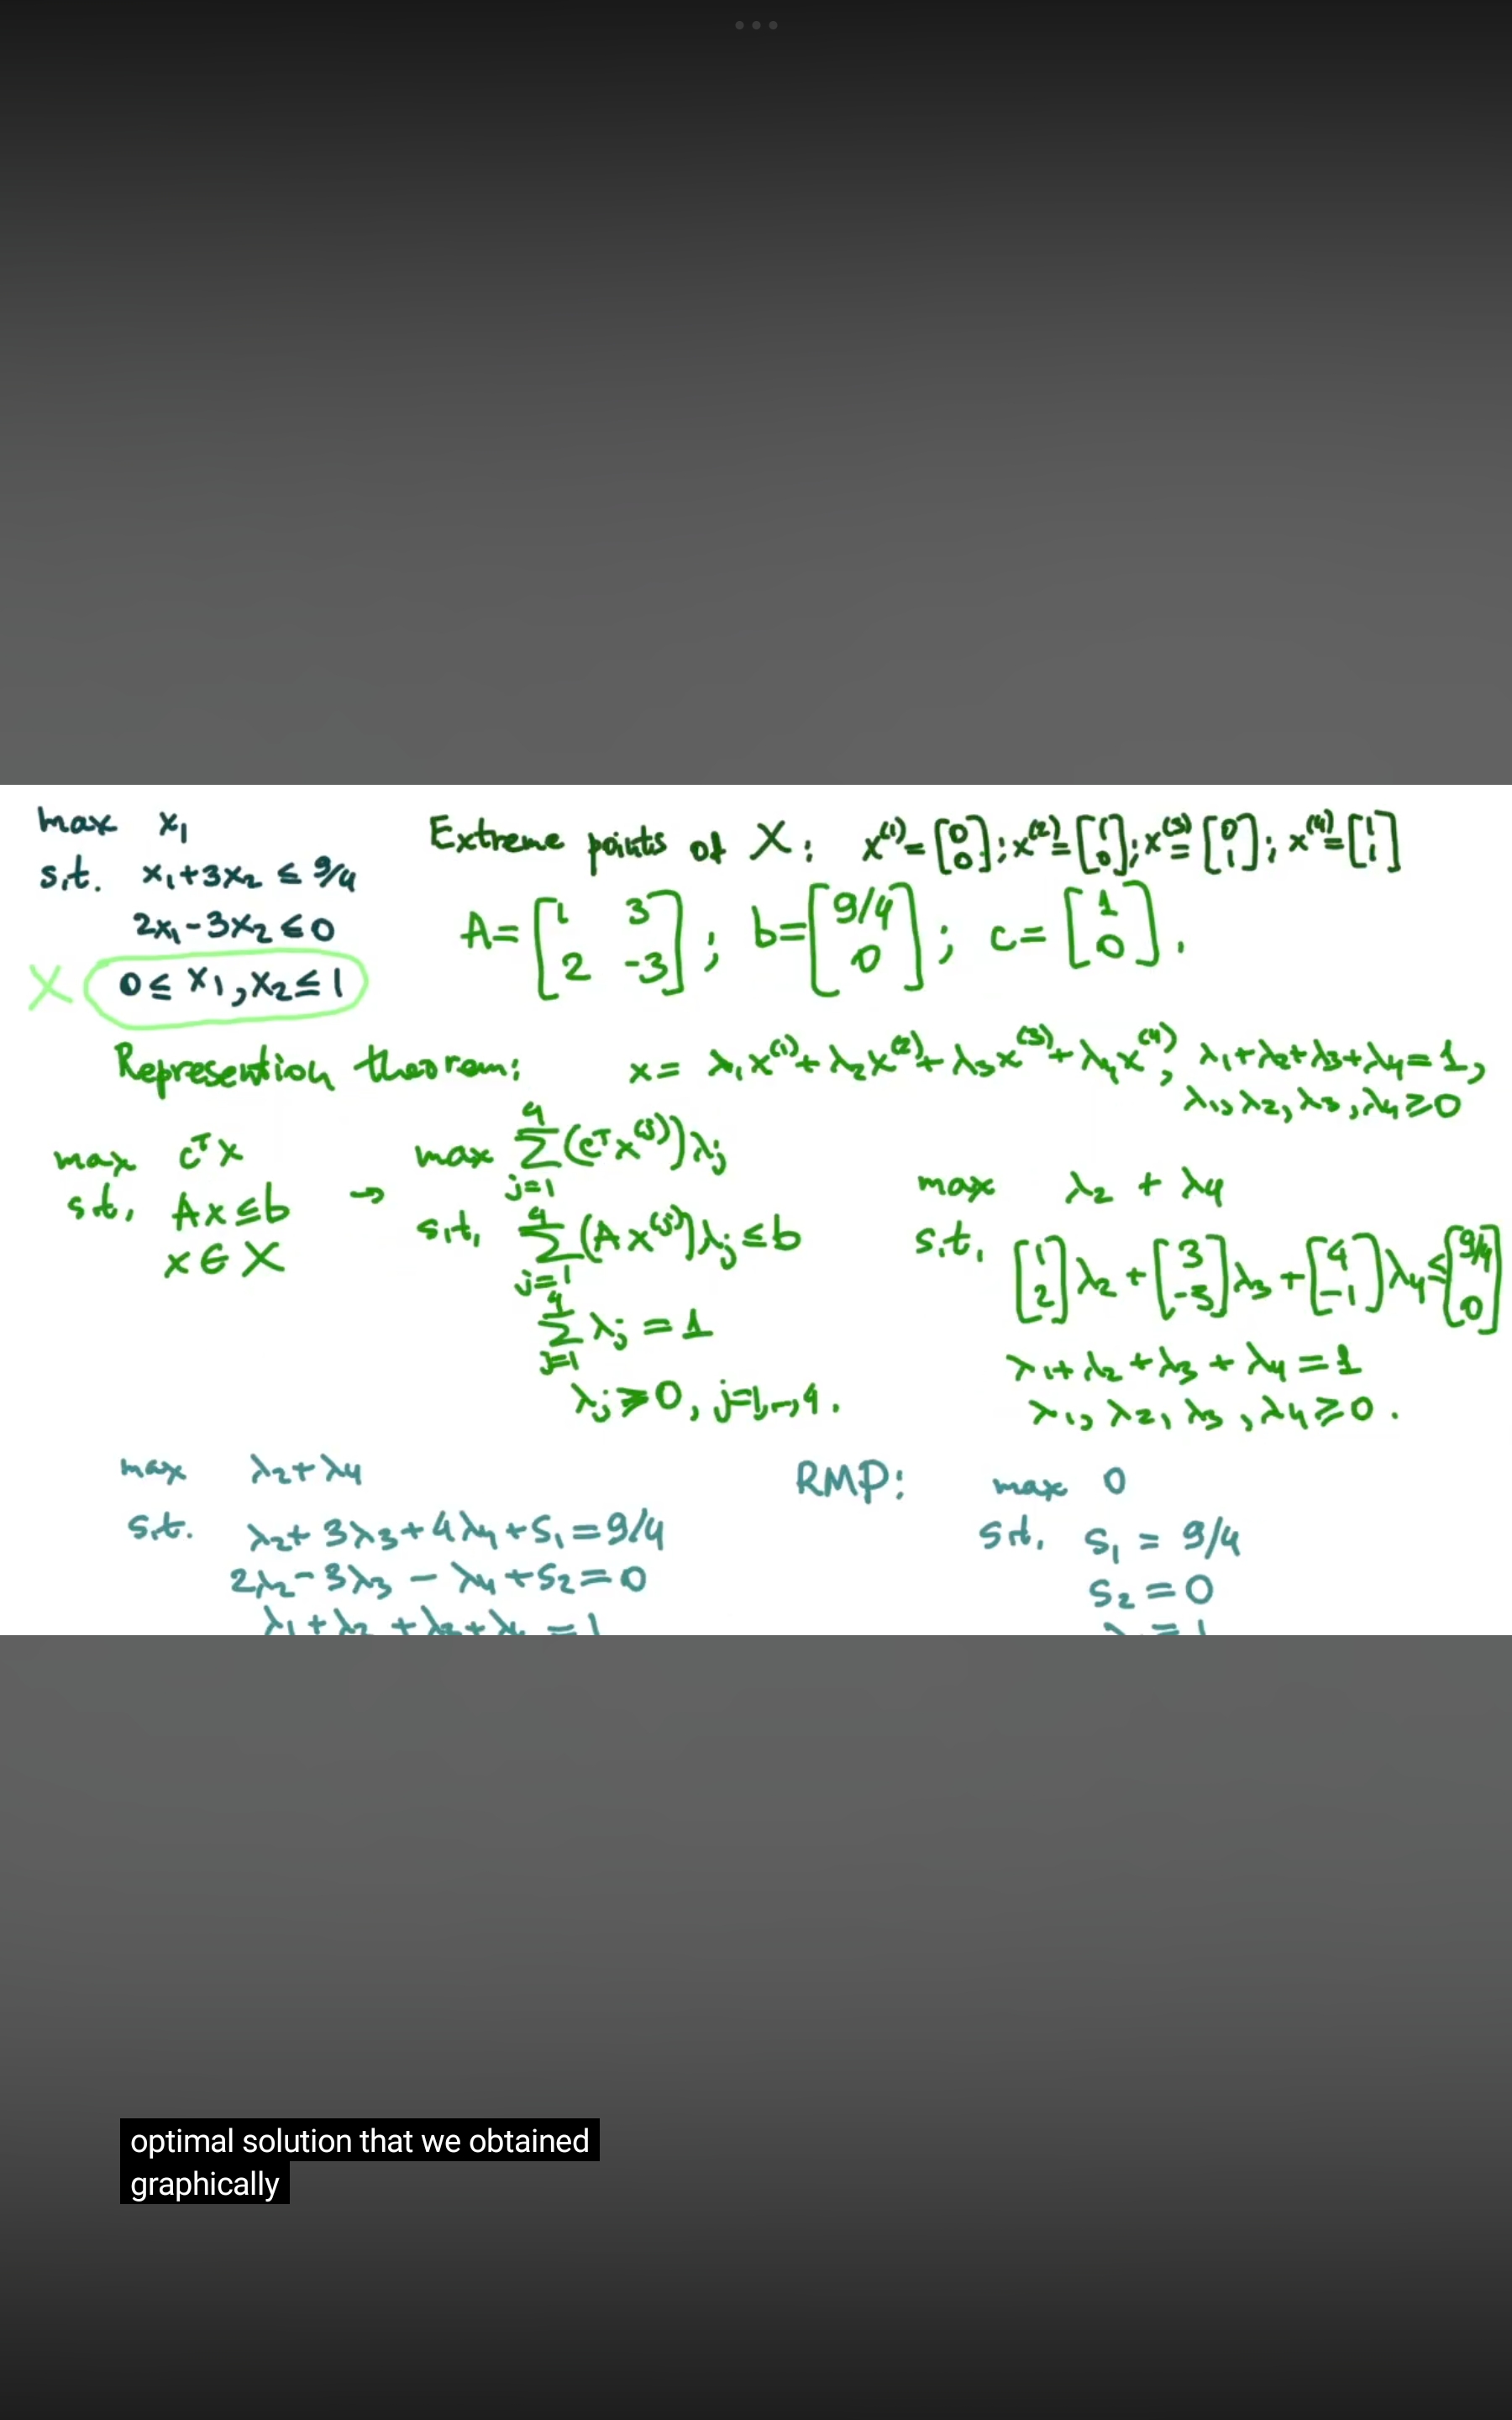 max x₁
s.t. x₁+3x₂ ≤ 9/4
2x₁-3x₂ ≤ 0
X 0 ≤ x₁,x₂ ≤ 1
Extreme points of X: x⁽¹⁾=[0 0]; x⁽²⁾=[1 0]; x⁽³⁾=[0 1]; x⁽⁴⁾=[1 1]
A=[1 3; 2 -3]; b=[9/4 0]; c=[1 0].
Represention theorem: x= λ₁x⁽¹⁾+λ₂x⁽²⁾+λ₃x⁽³⁾+λ₄x⁽⁴⁾, λ₁+λ₂+λ₃+λ₄=1,
λ₁,λ₂,λ₃,λ₄≥0
max cᵀx
s.t. Ax≤b
x∈X
→
max Σ_{j=1}^{4}(cᵀx⁽ʲ⁾)λⱼ
s.t. Σ_{j=1}^{4}(Ax⁽ʲ⁾)λⱼ≤b
Σ_{j=1}^{4}λⱼ=1
λⱼ≥0, j=1,...,4.
max λ₂+λ₄
s.t. [1 2]λ₂+[3 -3]λ₃+[4 -1]λ₄≤[9/4 0]
λ₁+λ₂+λ₃+λ₄=1
λ₁,λ₂,λ₃,λ₄≥0.
max λ₂+λ₄
s.t. λ₂+3λ₃+4λ₄+s₁=9/4
2λ₂-3λ₃-λ₄+s₂=0
λ₁+λ₂+λ₃+λ₄=1
RMP: max 0
s.t. s₁=9/4
s₂=0
optimal solution that we obtained
graphically